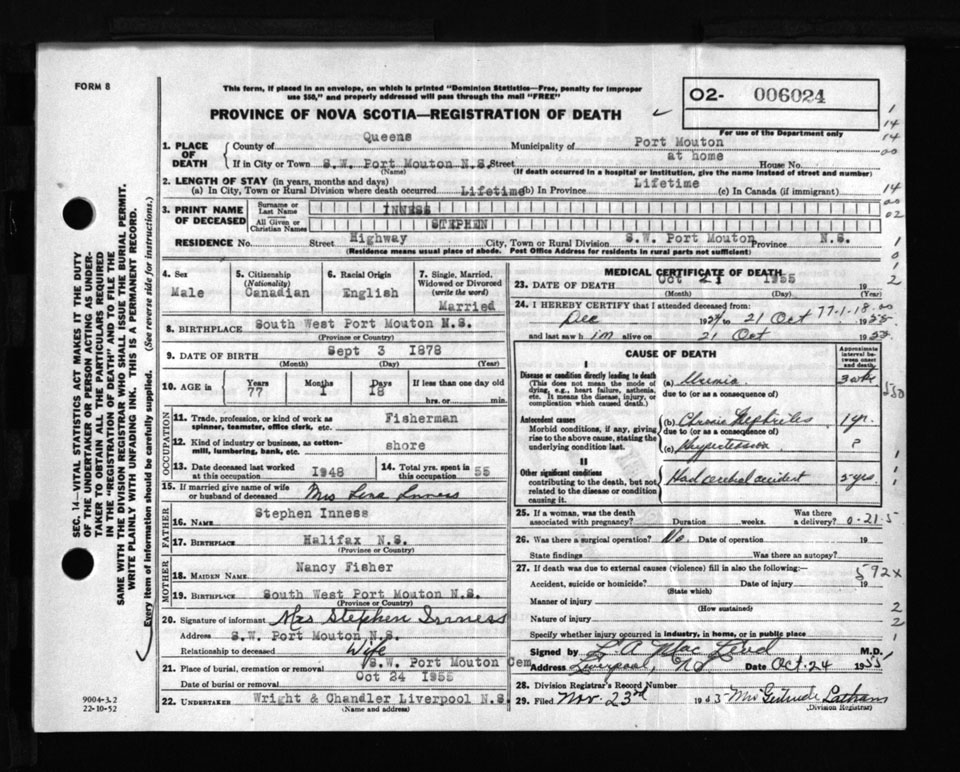 FORM 8
This form, if placed in an envelope, on which is printed "Dominion Statistics—Free, penalty for improper
use $50," and properly addressed will pass through the mail "FREE"
PROVINCE OF NOVA SCOTIA—REGISTRATION OF DEATH
O2- 006024
For use of the Department only
1. PLACE OF DEATH
County of Queens Municipality of Port Mouton
If in City or Town S.W. Port Mouton N.S. Street at home House No.
(Name) (If death occurred in a hospital or institution, give the name instead of street and number)
2. LENGTH OF STAY (in years, months and days)
(a) In City, Town or Rural Division where death occurred Lifetime (b) In Province Lifetime (c) In Canada (if immigrant)
3. PRINT NAME OF DECEASED
Surname or Last Name INNESS
All Given or Christian Names STEPHEN
RESIDENCE No. Street Highway City, Town or Rural Division S.W. Port Mouton Province N.S.
(Residence means usual place of abode. Post Office Address for residents in rural parts not sufficient)
4. Sex
Male
5. Citizenship (Nationality)
Canadian
6. Racial Origin
English
7. Single, Married, Widowed or Divorced (write the word)
Married
8. BIRTHPLACE South West Port Mouton N.S.
(Province or Country)
9. DATE OF BIRTH Sept 3 1878
(Month) (Day) (Year)
10. AGE in Years 77 Months 1 Days 18 If less than one day old
hrs. or min.
OCCUPATION
11. Trade, profession, or kind of work as spinner, teamster, office clerk, etc. Fisherman
12. Kind of industry or business, as cotton-mill, lumbering, bank, etc. shore
13. Date deceased last worked at this occupation 1948
14. Total yrs. spent in this occupation 55
15. If married give name of wife or husband of deceased Mrs Lena Inness
FATHER
16. NAME Stephen Inness
17. BIRTHPLACE Halifax N.S.
(Province or Country)
MOTHER
18. MAIDEN NAME Nancy Fisher
19. BIRTHPLACE South West Port Mouton N.S.
(Province or Country)
20. Signature of informant Mrs Stephen Inness
Address S.W. Port Mouton N.S.
Relationship to deceased Wife
21. Place of burial, cremation or removal S.W. Port Mouton Cem
Date of burial or removal Oct 24 1955
22. UNDERTAKER Wright & Chandler Liverpool N.S.
(Name and address)
MEDICAL CERTIFICATE OF DEATH
23. DATE OF DEATH Oct 21 1955 19
(Month) (Day) (Year)
24. I HEREBY CERTIFY that I attended deceased from:
77-1-18.00
Dec 1954 to 21 Oct 1955
and last saw him alive on 21 Oct 1955
CAUSE OF DEATH
Approximate interval between onset and death
I
Disease or condition directly leading to death
(This does not mean the mode of dying, e.g., heart failure, asthenia, etc. It means the disease, injury, or complication which caused death.)
(a) Uremia 3 wks
due to (or as a consequence of)
Antecedent causes
Morbid conditions, if any, giving rise to the above cause, stating the underlying condition last.
(b) Chronic Nephritis 1 yr.
due to (or as a consequence of)
(c) Hypertension ?
II
Other significant conditions
contributing to the death, but not related to the disease or condition causing it.
Had cerebral accident 5 yrs.
25. If a woman, was the death associated with pregnancy? Duration weeks. Was there a delivery? 0-21-5
26. Was there a surgical operation? No. Date of operation 19
State findings Was there an autopsy?
27. If death was due to external causes (violence) fill in also the following:— 592x
Accident, suicide or homicide? Date of injury 19
(State which)
Manner of injury
(How sustained)
Nature of injury
Specify whether injury occurred in industry, in home, or in public place
Signed by L A Mac Leod M.D.
Address Liverpool, N S Date Oct. 24 1955
28. Division Registrar's Record Number
29. Filed Nov. 23rd 19 Mrs Gertrude Latham
(Division Registrar)
SEC. 14—VITAL STATISTICS ACT MAKES IT THE DUTY
OF THE UNDERTAKER OR PERSON ACTING AS UNDER-
TAKER TO OBTAIN ALL THE PARTICULARS REQUIRED
IN THE "REGISTRATION OF DEATH" AND TO FILE THE
SAME WITH THE DIVISION REGISTRAR WHO SHALL ISSUE THE BURIAL PERMIT.
WRITE PLAINLY WITH UNFADING INK. THIS IS A PERMANENT RECORD.
Every item of information should be carefully supplied. (See reverse side for instructions.)
9004-3.2
22-10-52